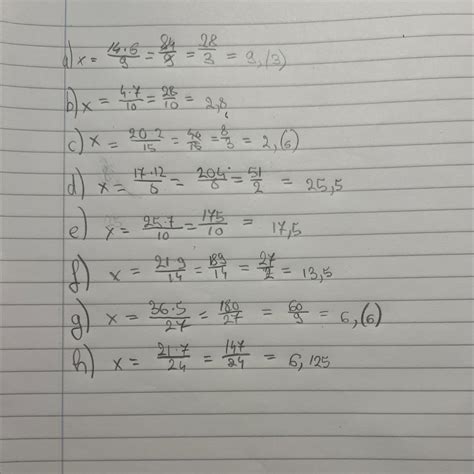 a) x = 14·6/9 = 84/9 = 28/3 = 9,(3)
b) x = 4·7/10 = 28/10 = 2,8
c) x = 20·2/15 = 40/15 = 8/3 = 2,(6)
d) x = 17·12/8 = 204/8 = 51/2 = 25,5
e) x = 25·7/10 = 175/10 = 17,5
f) x = 21·9/14 = 189/14 = 27/2 = 13,5
g) x = 36·5/27 = 180/27 = 60/9 = 6,(6)
h) x = 21·7/24 = 147/24 = 6,125